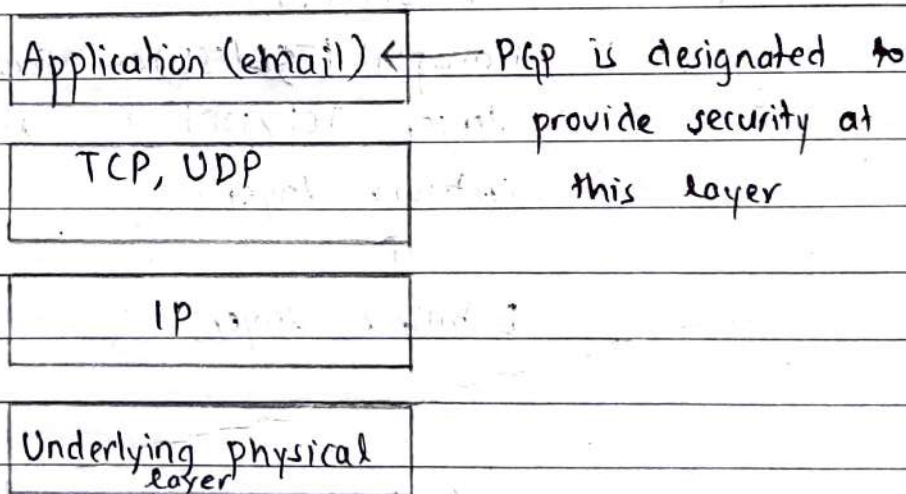 Application (email) ← PGP is designated to
provide security at
TCP, UDP
this layer
IP
Underlying physical
layer